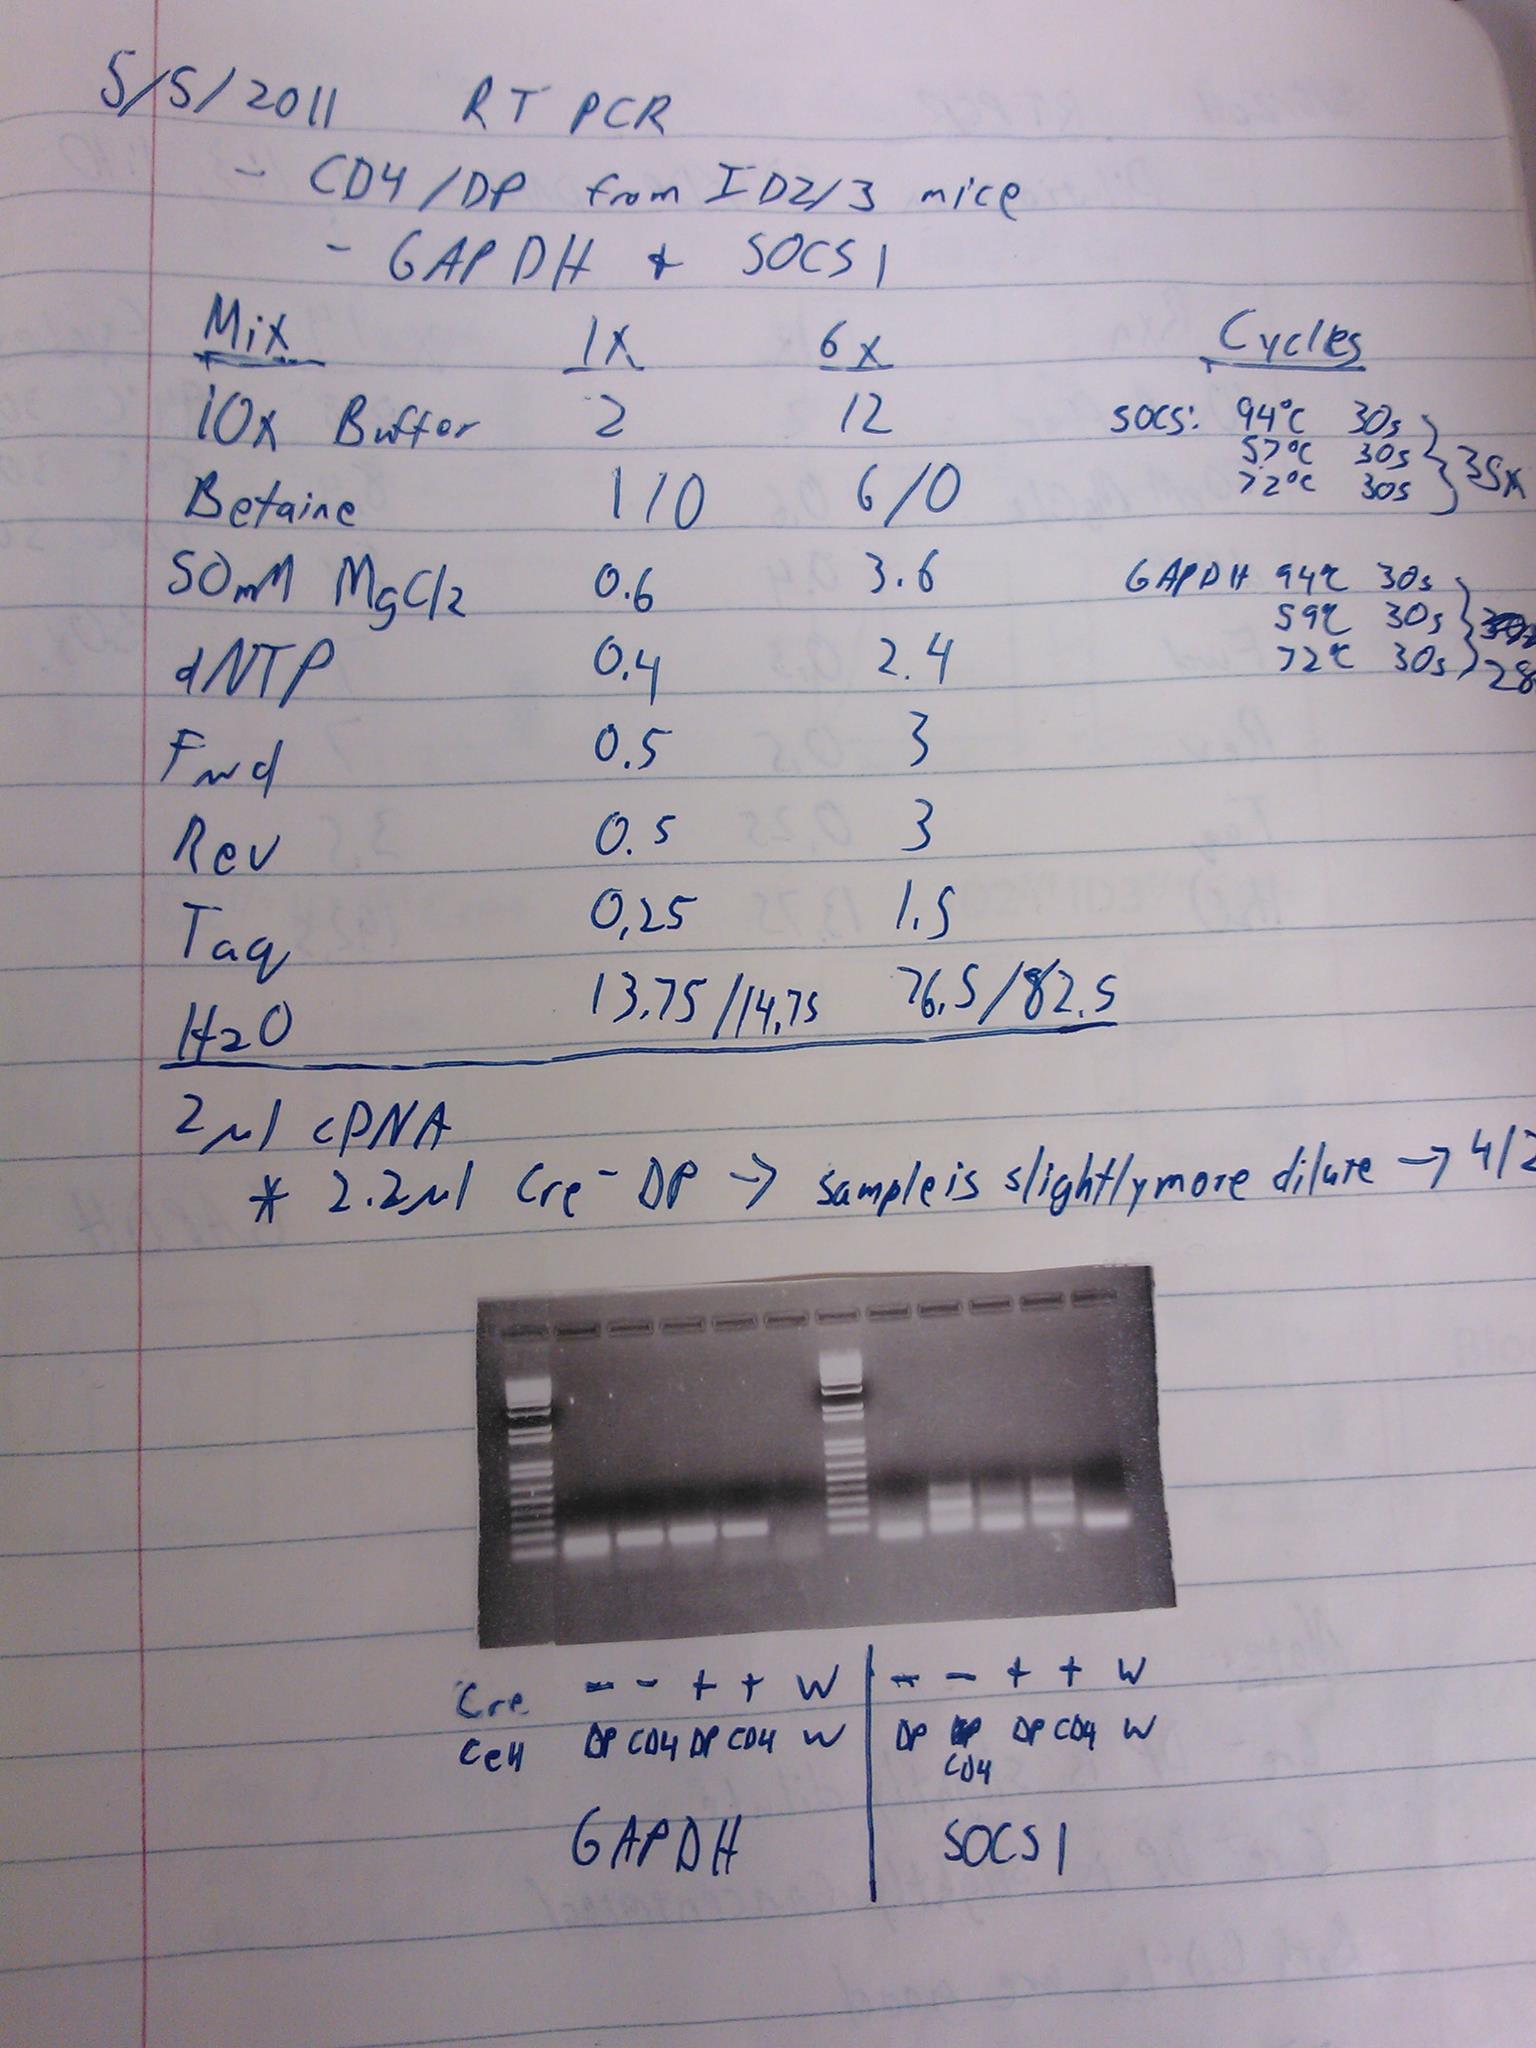 5/5/2011 RT PCR
- CD4/DP from ID2/3 mice
- GAPDH + SOCS1
Mix 1x 6x Cycles
10x Buffer 2 12 SOCS: 94°C 30s
57°C 30s
72°C 30s } 35x
Betaine 1/0 6/0
50mM MgCl2 0.6 3.6 GAPDH 94°C 30s
59°C 30s
72°C 30s } 28
dNTP 0.4 2.4
Fwd 0.5 3
Rev 0.5 3
Taq 0.25 1.5
H2O 13.75/14.75 76.5/82.5
2μl cDNA
* 2.2μl Cre- DP → sample is slightly more dilute → 4/2
Cre - - + + W | - - + + W
Cell DP CD4 DP CD4 W | DP CD4 DP CD4 W
GAPDH | SOCS1